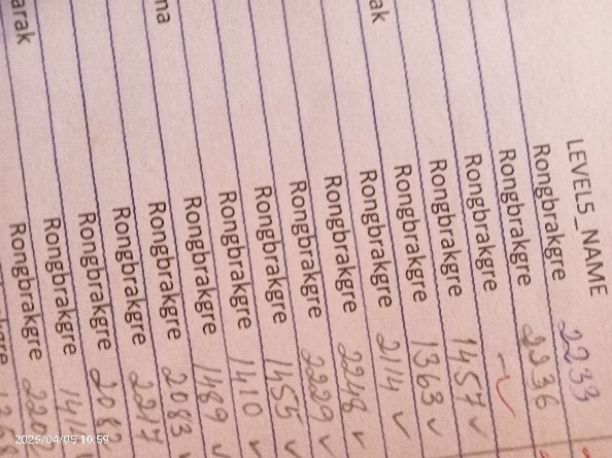 LEVEL5_NAME
Rongbrakgre 2233
Rongbrakgre 2236
Rongbrakgre ✓
Rongbrakgre 1457 ✓
Rongbrakgre 1363 ✓
ak Rongbrakgre 2114 ✓
Rongbrakgre 2248 ✓
Rongbrakgre 2229 ✓
Rongbrakgre 1455 ✓
Rongbrakgre 1410 ✓
Rongbrakgre 1489 ✓
na Rongbrakgre 2083
Rongbrakgre 2217
Rongbrakgre 2082
Rongbrakgre
arak Rongbrakgre
2025/04/05 10:59